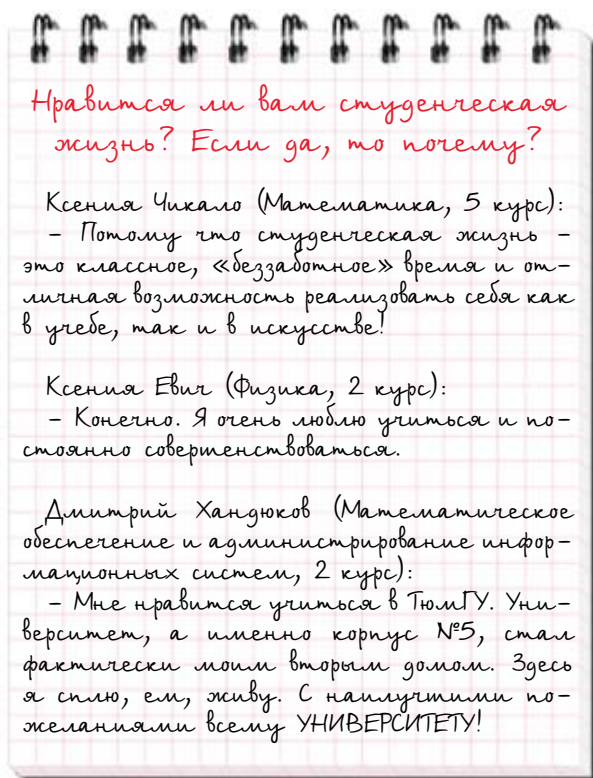 Нравится ли вам студенческая
жизнь? Если да, то почему?
Ксения Чикало (Математика, 5 курс):
– Потому что студенческая жизнь –
это классное, «беззаботное» время и от-
личная возможность реализовать себя как
в учебе, так и в искусстве!
Ксения Евич (Физика, 2 курс):
– Конечно. Я очень люблю учиться и по-
стоянно совершенствоваться.
Дмитрий Хандюков (Математическое
обеспечение и администрирование инфор-
мационных систем, 2 курс):
– Мне нравится учиться в ТюмГУ. Уни-
верситет, а именно корпус №5, стал
фактически моим вторым домом. Здесь
я сплю, ем, живу. С наилучшими по-
желаниями всему УНИВЕРСИТЕТУ!